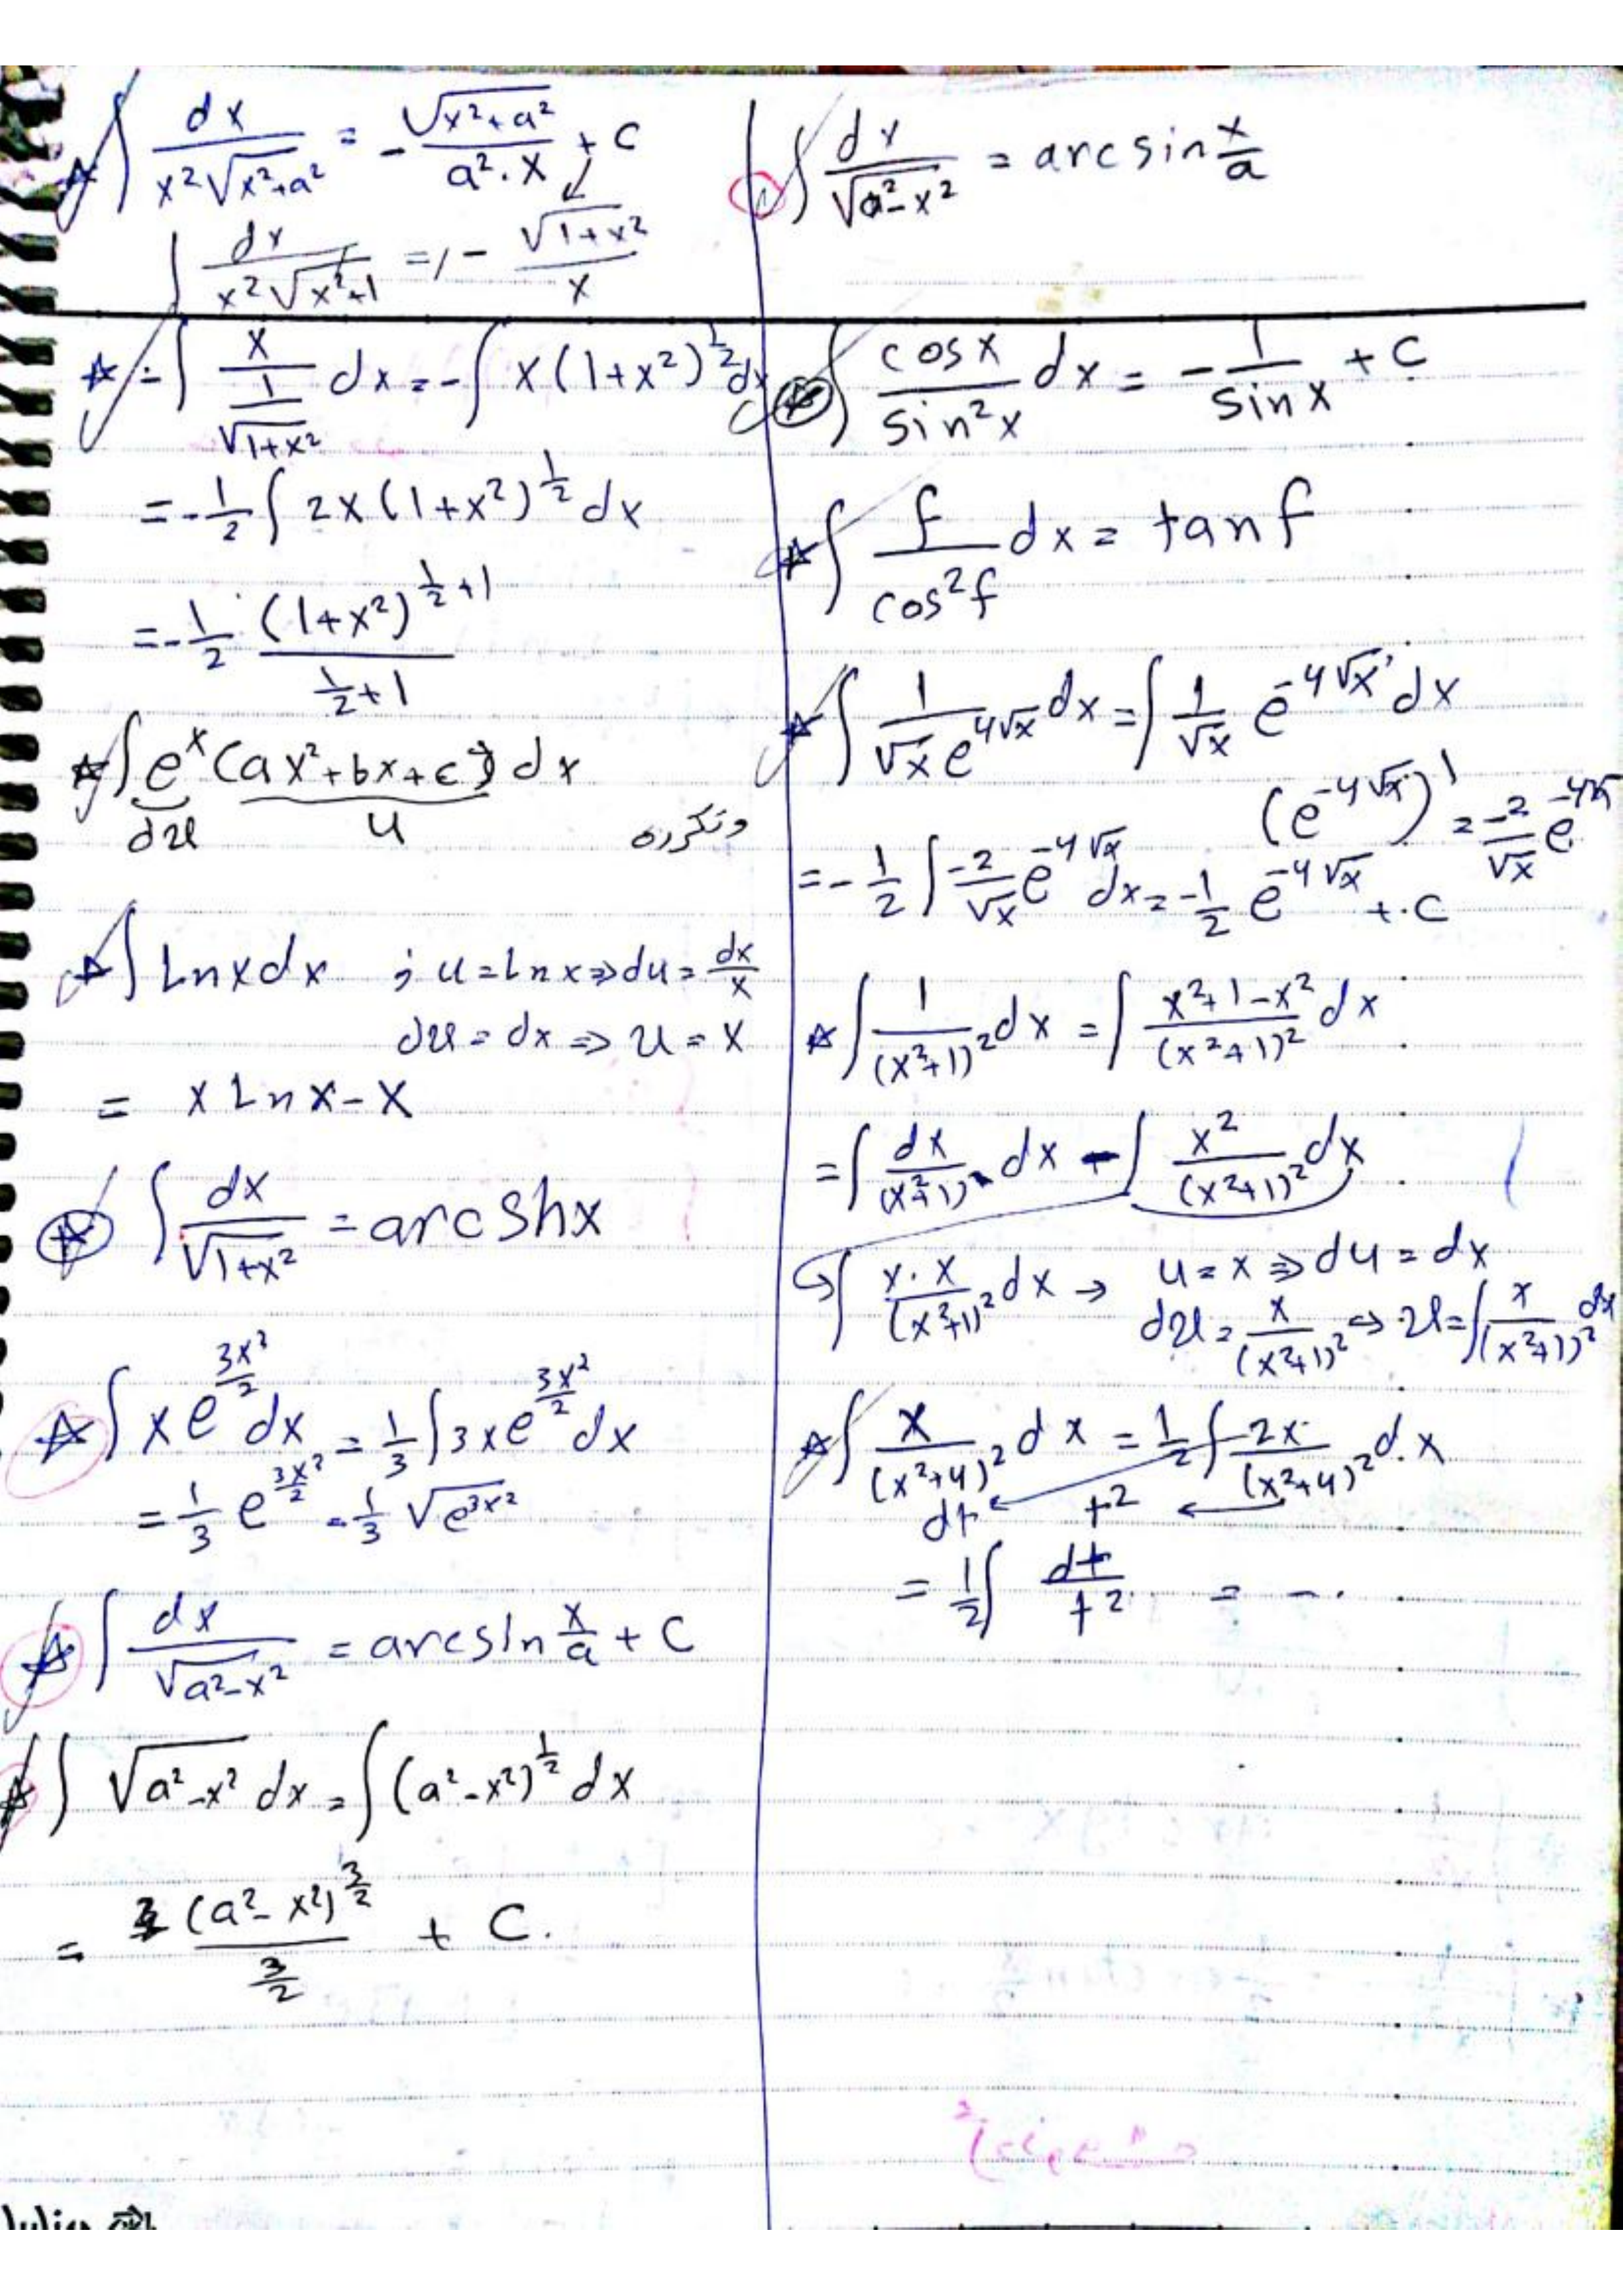 ∫ dx/(x²√(x²+a²)) = - √(x²+a²)/(a².x) + C
∫ dx/(x²√(x²+1)) = - √(1+x²)/x
∫ dx/√(a²-x²) = arc sin x/a
☆ - ∫ x/(1/√(1+x²)) dx = - ∫ x(1+x²)^(1/2) dx
= -1/2 ∫ 2x(1+x²)^(1/2) dx
= -1/2 . (1+x²)^(1/2+1)/(1/2+1)
☆ ∫ e^x (ax²+bx+c) dx
dv u ونكرره
☆ ∫ Ln x dx ; u = Ln x ⇒ du = dx/x
dv = dx ⇒ v = x
= x Ln x - x
☆ ∫ dx/√(1+x²) = arc Sh x
☆ ∫ x e^(3x²/2) dx = 1/3 ∫ 3x e^(3x²/2) dx
= 1/3 e^(3x²/2) = 1/3 √(e^(3x²))
☆ ∫ dx/√(a²-x²) = arcsin x/a + C
☆ ∫ √(a²-x²) dx = ∫ (a²-x²)^(1/2) dx
= (a²-x²)^(3/2)/(3/2) + C.
☆ ∫ cos x/sin²x dx = - 1/sin x + C
☆ ∫ f/cos²f dx = tan f
☆ ∫ 1/(√x e^(4√x)) dx = ∫ 1/√x e^(-4√x) dx
(e^(-4√x))' = -2/√x e^(-4√x)
= -1/2 ∫ -2/√x e^(-4√x) dx = -1/2 e^(-4√x) + C
☆ ∫ 1/(x²+1)² dx = ∫ (x²+1-x²)/(x²+1)² dx
= ∫ dx/(x²+1) dx - ∫ x²/(x²+1)² dx
∫ x.x/(x²+1)² dx → u = x ⇒ du = dx
dv = x/(x²+1)² ⇒ v = ∫ x/(x²+1)² dx
☆ ∫ x/(x²+4)² dx = 1/2 ∫ 2x/(x²+4)² dx
dt t²
= 1/2 ∫ dt/t² = - .